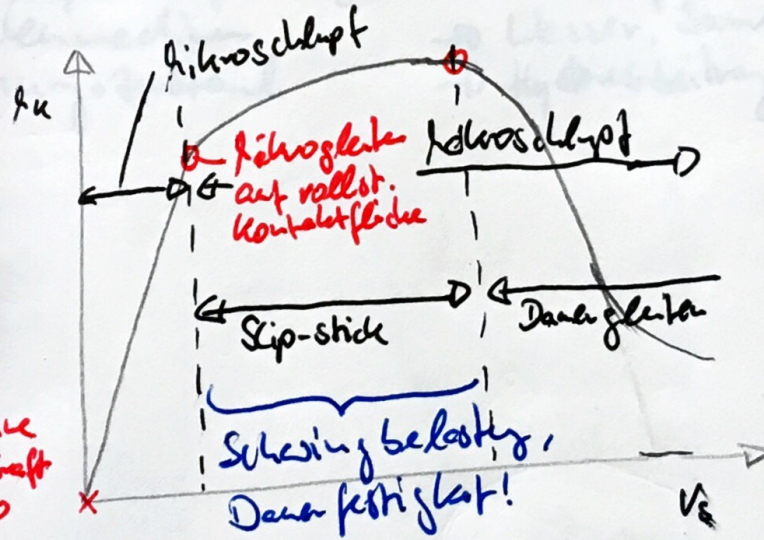 Mikroschlupf
μ_K
Mikrogleiten
auf vollst.
Kontaktfläche
Makroschlupf
Slip-stick
Dauergleiten
Schwingbelastg,
Dauerfestigkeit!